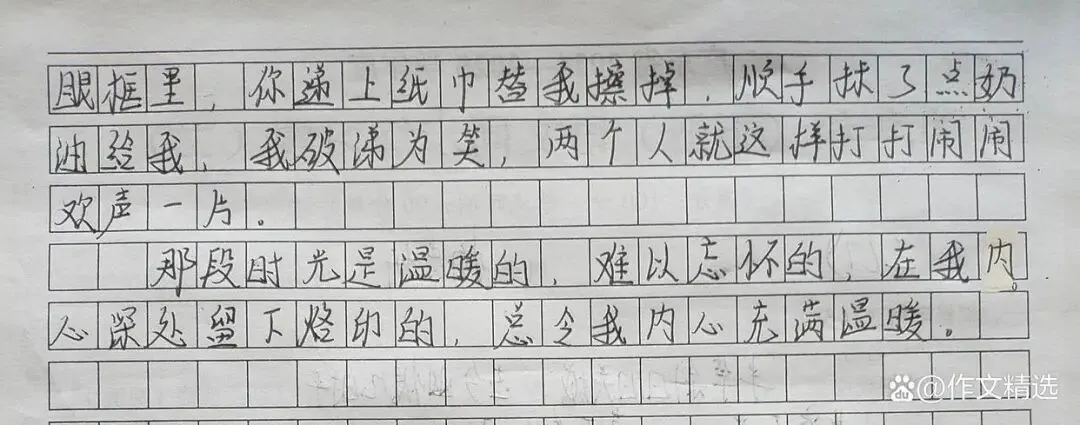 眼框里，你递上纸巾替我擦掉，顺手抹了点奶
油给我，我破涕为笑，两个人就这样打打闹闹
欢声一片。
那段时光是温暖的，难以忘怀的，在我内
心深处留下烙印的，总令我内心充满温暖。
@作文精选